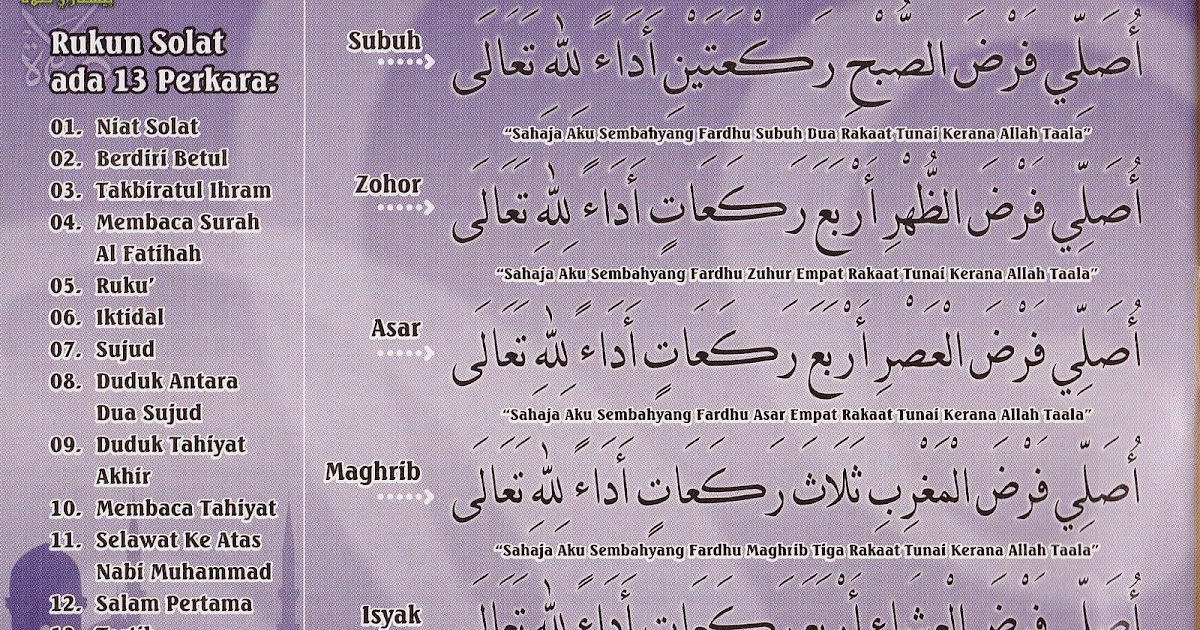 Rukun Solat
ada 13 Perkara:
01. Niat Solat
02. Berdiri Betul
03. Takbiratul Ihram
04. Membaca Surah
Al Fatihah
05. Ruku’
06. Iktidal
07. Sujud
08. Duduk Antara
Dua Sujud
09. Duduk Tahiyat
Akhir
10. Membaca Tahiyat
11. Selawat Ke Atas
Nabi Muhammad
12. Salam Pertama
Subuh
أُصَلِّي فَرْضَ الصُّبْحِ رَكْعَتَيْنِ أَدَاءً لِلّٰهِ تَعَالَى
“Sahaja Aku Sembahyang Fardhu Subuh Dua Rakaat Tunai Kerana Allah Taala”
Zohor
أُصَلِّي فَرْضَ الظُّهْرِ أَرْبَعَ رَكَعَاتٍ أَدَاءً لِلّٰهِ تَعَالَى
“Sahaja Aku Sembahyang Fardhu Zuhur Empat Rakaat Tunai Kerana Allah Taala”
Asar
أُصَلِّي فَرْضَ الْعَصْرِ أَرْبَعَ رَكَعَاتٍ أَدَاءً لِلّٰهِ تَعَالَى
“Sahaja Aku Sembahyang Fardhu Asar Empat Rakaat Tunai Kerana Allah Taala”
Maghrib
أُصَلِّي فَرْضَ الْمَغْرِبِ ثَلَاثَ رَكَعَاتٍ أَدَاءً لِلّٰهِ تَعَالَى
“Sahaja Aku Sembahyang Fardhu Maghrib Tiga Rakaat Tunai Kerana Allah Taala”
Isyak
أُصَلِّي فَرْضَ الْعِشَاءِ أَرْبَعَ رَكَعَاتٍ أَدَاءً لِلّٰهِ تَعَالَى